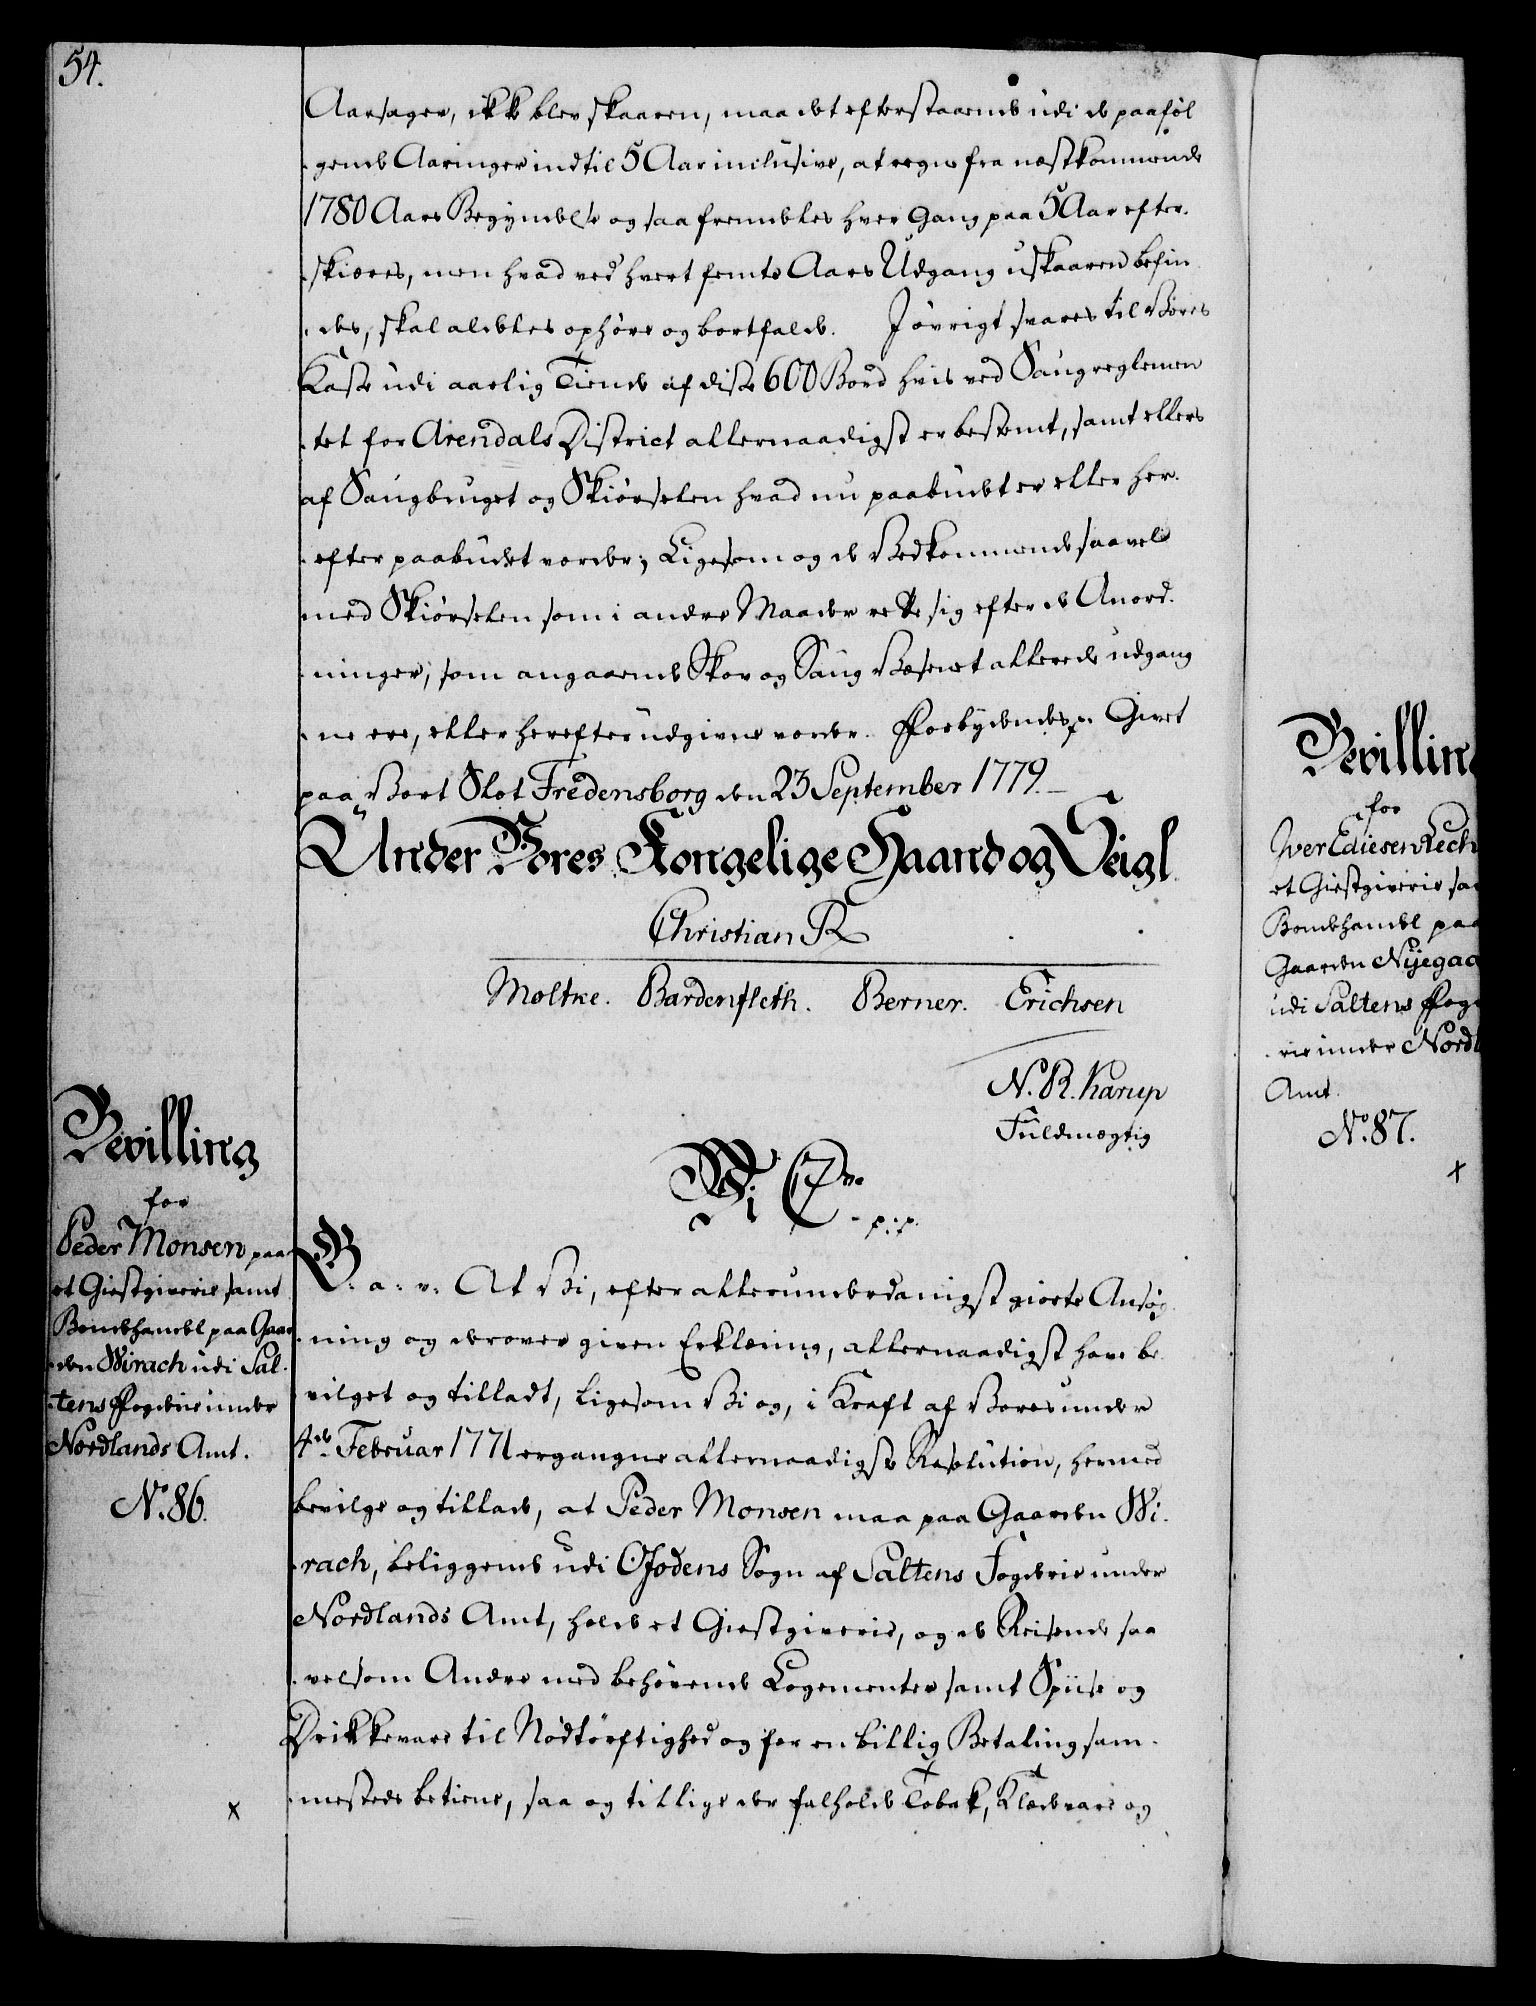 54.
Aarsager, ikke blev skaaren, maa det efterstaaende udi de paaføl
gende Aaringer indtil 5 Aar inclusive, at regne fra næstkommende
1780 Aars Begyndelse og saa fremdeles hver Gang paa 5 Aar efter-
skiæres, men hvad ved hvert femte Aars Udgang uskaaren befin
des, skal aldeles ophøre og bortfalde. I øvrigt svares til Vores
Kasse udi aarlig Tiende af disse 600 Bord hvis ved Saugreglemen
tet for Arendals District allernaadigst er bestemt, samt ellers
af Saugbruget og Skiørselen hvad nu paabudet er eller her-
efter paabudet vorder; Ligesom og de Vedkommende saavel
med Skiørselen som i andre Maader rette sig efter de Anord-
ninger, som angaaende Skov og Saug Væsenet allerede udgang
ne ere, eller herefter udgivne vorder. Forbydendes p. Givet
paa Vort Slot Fredensborg den 23 September 1779.
Under Vores Kongelige Haand og Seigl.
Christian R
Moltke. Bardenfleth. Berner. Erichsen
N. R. Karup
Fuldmægtig
Bevilling
for
Peder Monsen paa
et Giestgiverie samt
Bondehandel paa Gaar
den Wirach udi Sal-
tens Fogderie under
Nordlands Amt.
No. 86.
Wi C 7de
p: p.
G. a: v: At Vi, efter allerunderdanigst giorte Ansøg-
ning og derover given Erklæring, allernaadigst have be-
vilget og tilladt, ligesom Vi og, i Kraft af Vores under
4de Februar 1771 ergangne allernaadigste Resolution, hermed
bevilge og tillade, at Peder Monsen maa paa Gaarden Wi-
rach, beliggende udi Ofodens Sogn af Saltens Fogderie under
Nordlands Amt, holde et Giestgiverie, og de Reisende saa
velsom Andre med behøvende Logementer samt Spiise og
Drikkevare til Nødtørftighed og for en billig Betaling sam-
mestede betiene, saa og tillige der falholde Tobak, Klædevare og
x
Bevilling
for
Iver Ediesen Lech
et Giestgiverie sa
Bondehandel paa
Gaarden Nyegaa
udi Saltens Fog
rie under Nordl
Amt.
No. 87.
x